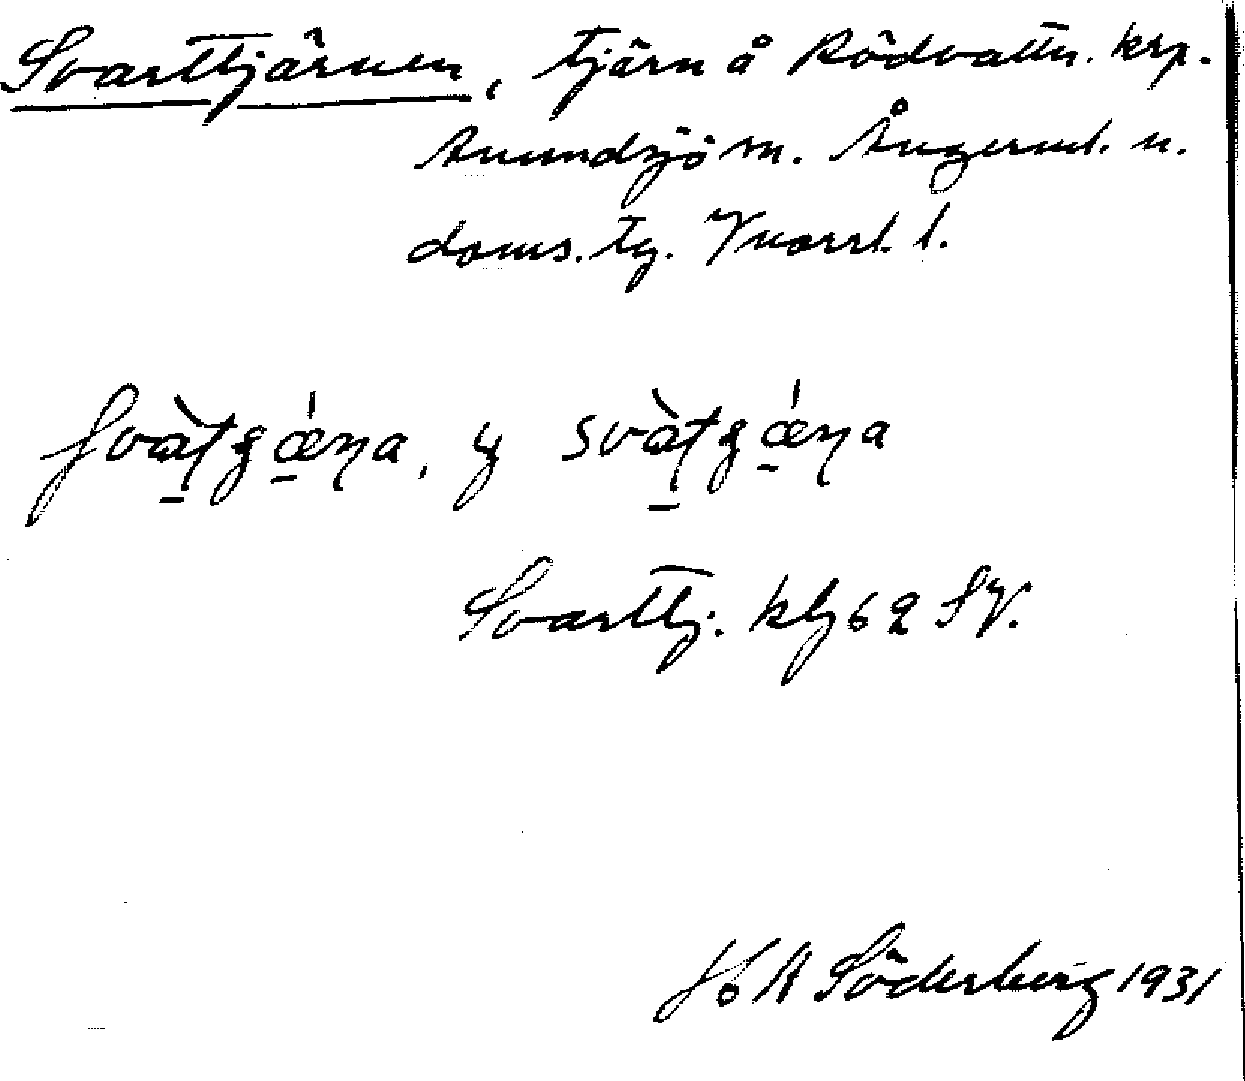 Svarttjärnen, tjärn å Rödvattn. krp.
Anundsjö sn. Ångerml. n.
doms. tg. Vnorrl. l.
y
Svarttj. kbl 62 SV.
H A Söderberg 1931